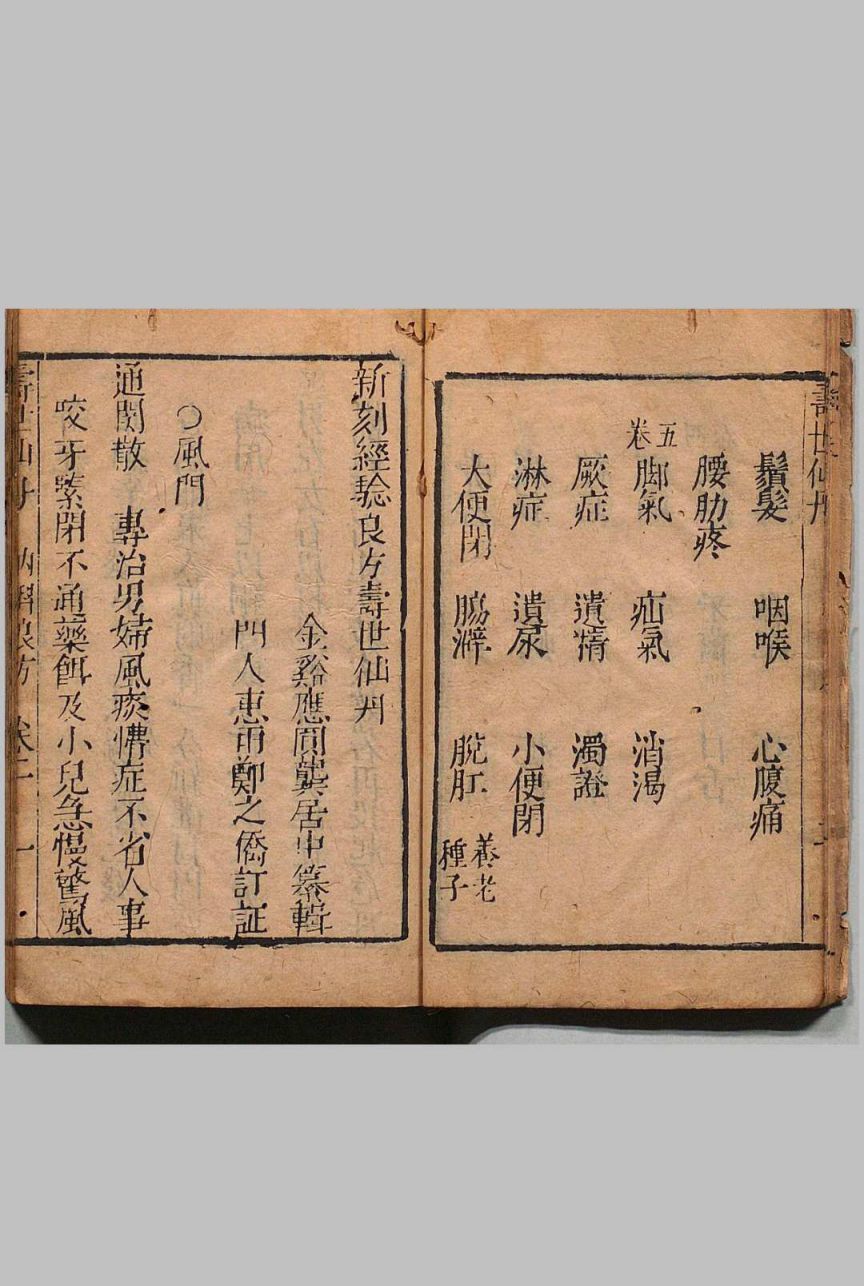 鬚髮　咽喉　心腹痛
腰肋疼
五卷
脚氣　疝氣　消渴
厥症　遺精　濁證
淋症　遺尿　小便閉
大便閉　腸澼　脫肛　養老種子
新刻經驗良方壽世仙丹
金谿應圓龔居中纂輯
門人惠甫鄭之僑訂証
○風門
通関散　專治男婦風痰懵症不省人事
咬牙緊閉不通藥餌及小兒急慢驚風